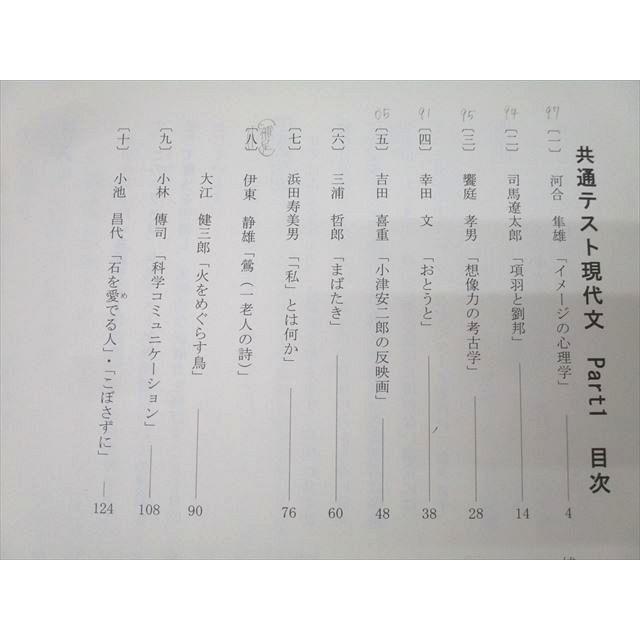 共通テスト現代文 Part1 目次
97
〔一〕 河合 隼雄 「イメージの心理学」 4
94
〔二〕 司馬遼太郎 「項羽と劉邦」 14
95
〔三〕 饗庭 孝男 「想像力の考古学」 28
91
〔四〕 幸田 文 「おとうと」 38
05
〔五〕 吉田 喜重 「小津安二郎の反映画」 48
〔六〕 三浦 哲郎 「まばたき」 60
〔七〕 浜田寿美男 「「私」とは何か」 76
〔八〕 伊東 静雄 「鶯（一老人の詩）」
大江 健三郎 「火をめぐらす鳥」 90
〔九〕 小林 傳司 「科学コミュニケーション」 108
〔十〕 小池 昌代 「石を愛でる人」・「こぼさずに」 124
め